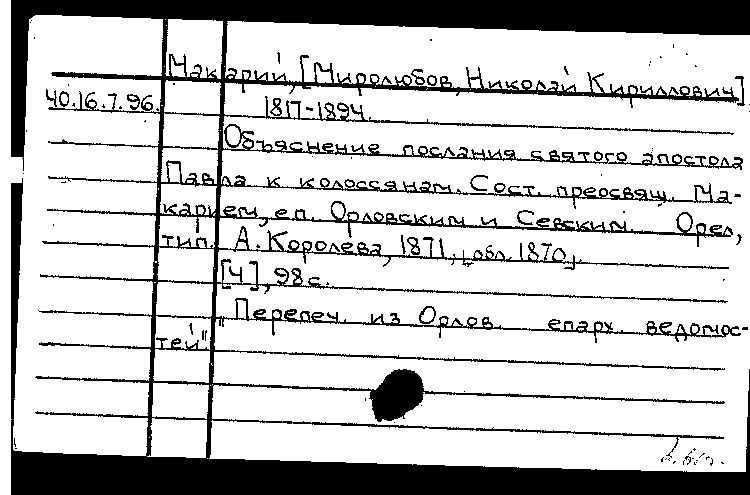 Макарий, [Миролюбов, Николай Кириллович]
40.16.7.96. 1817-1894.
Объяснение послания святого апостола
Павла к колоссянам. Сост. преосвящ. Ма-
карием, еп. Орловским и Севским. Орел,
тип. А. Королева, 1871, обл. 1870.
[4], 98 с.
"Перепеч. из Орлов. епарх. ведомос-
тей"